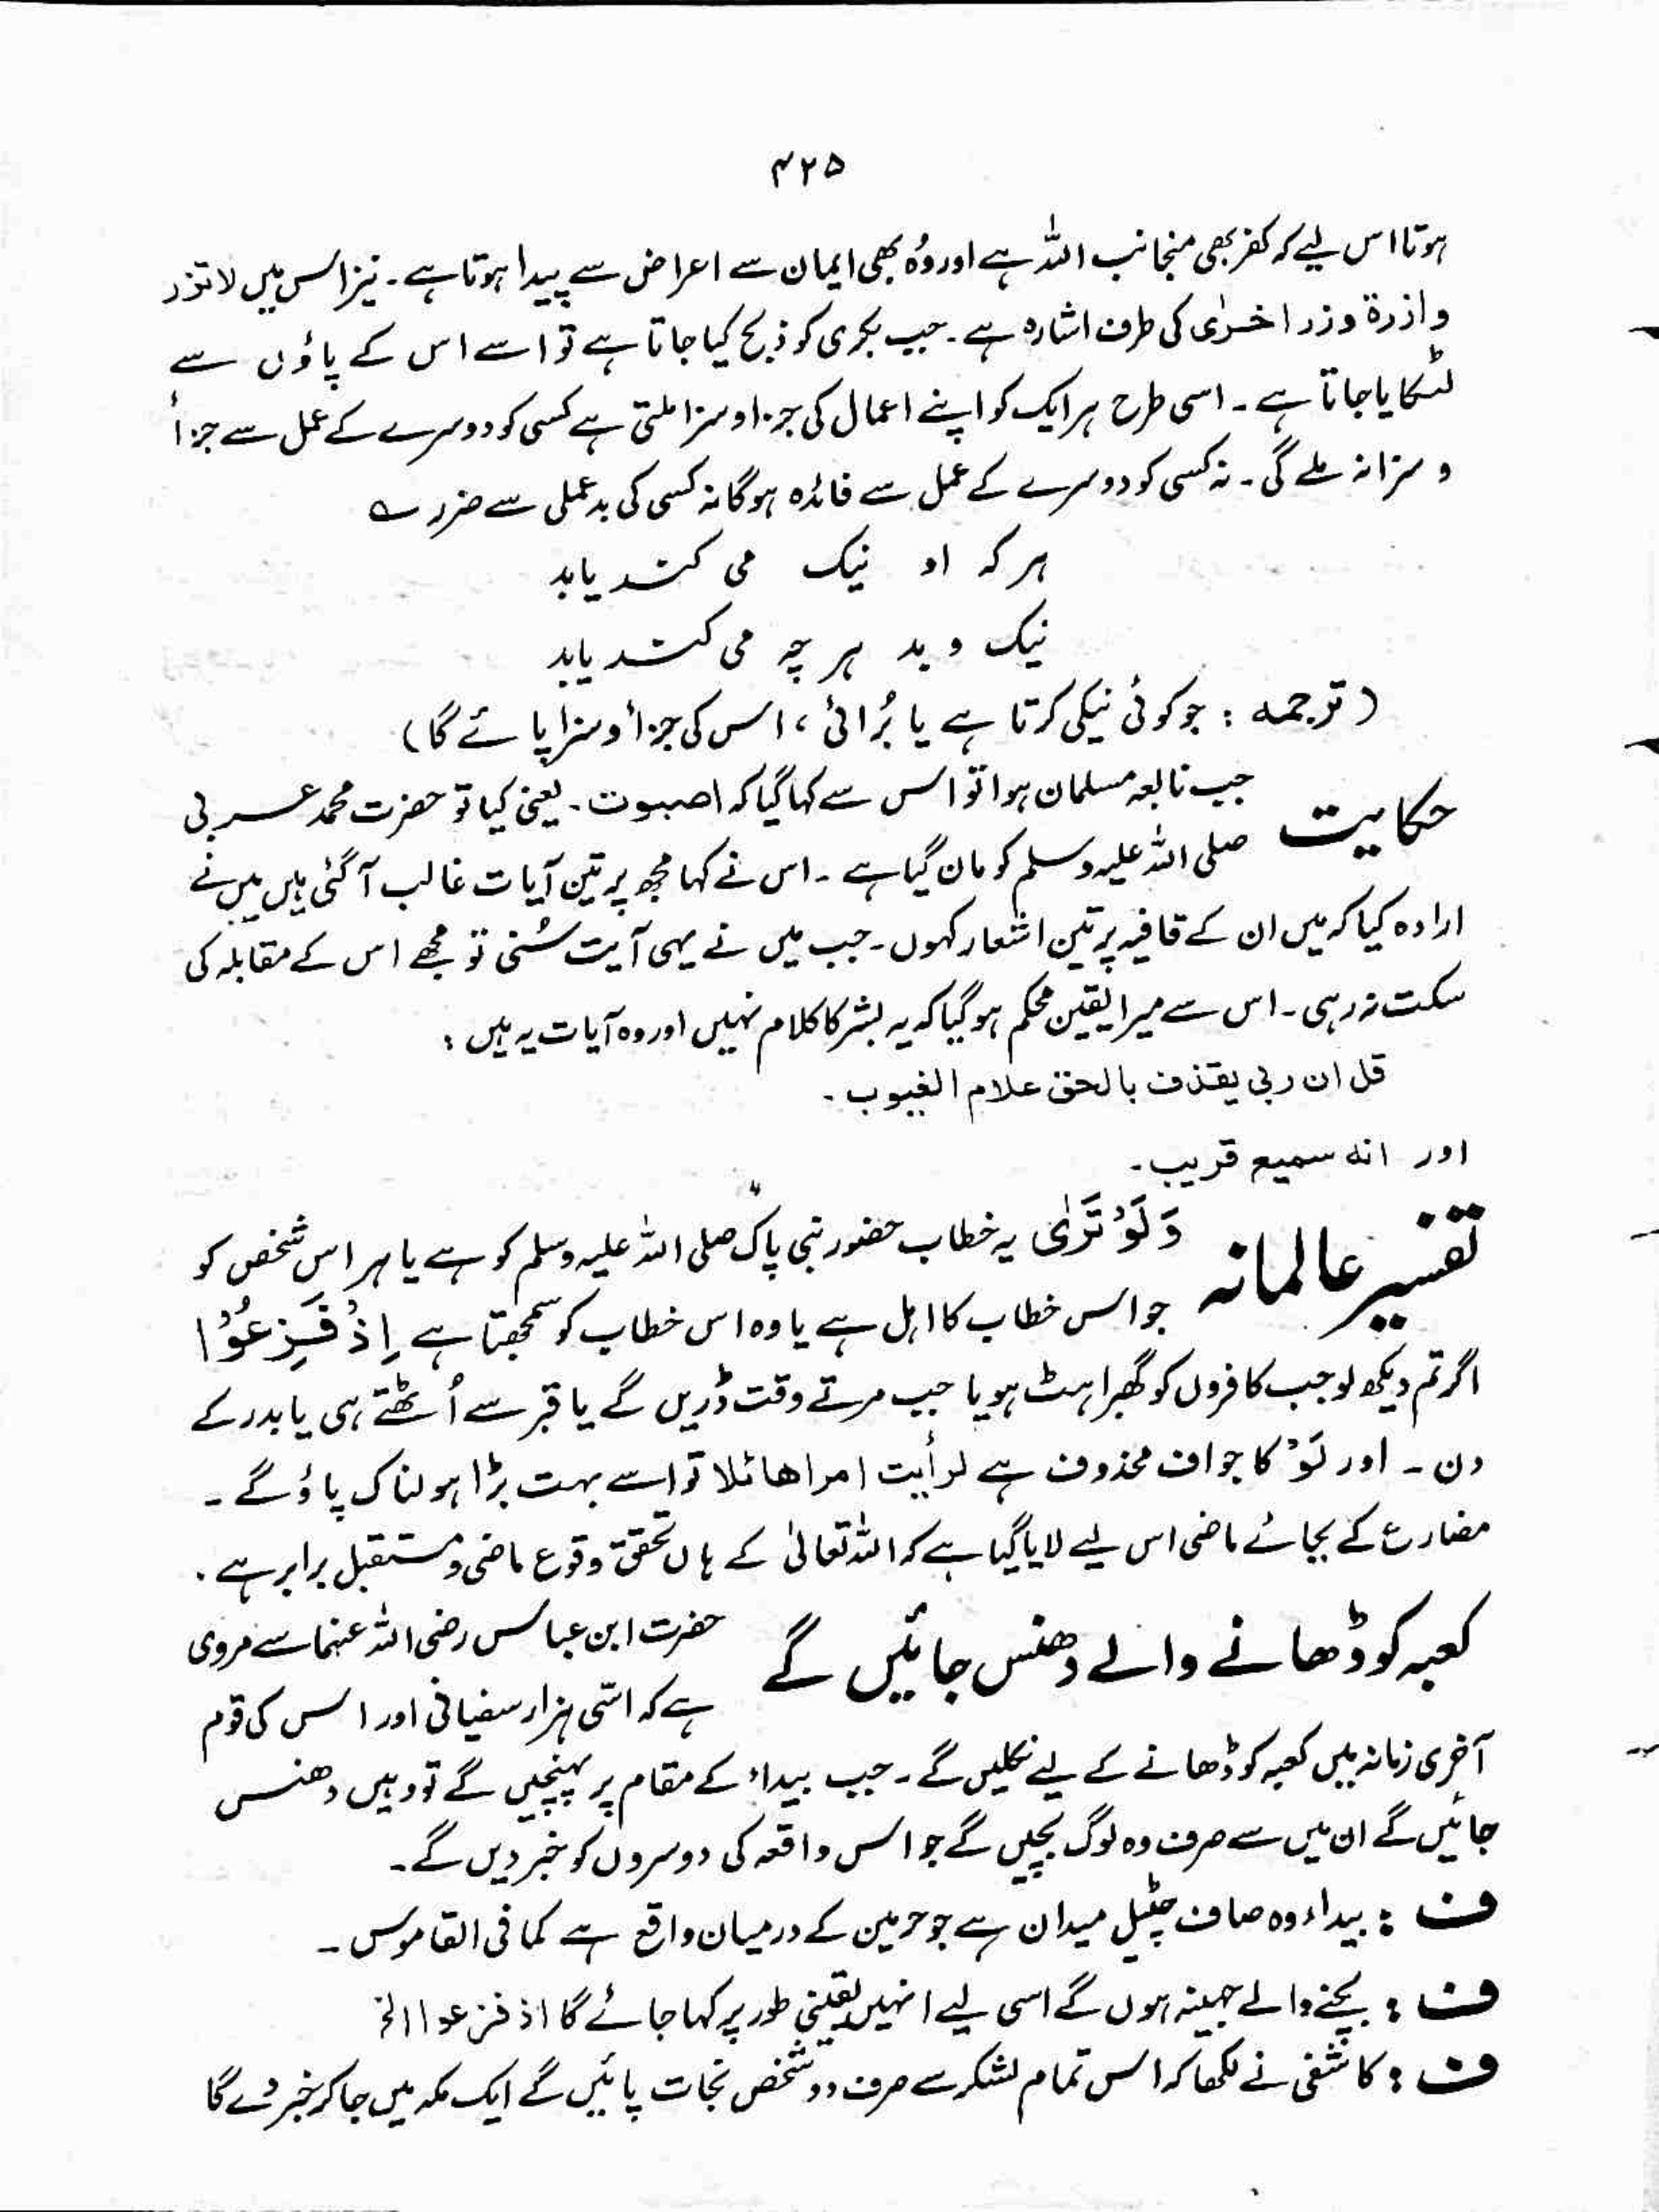 ۴۲۵
ہوتا اس لیے کہ کفر بھی منجانب اللہ ہے اور وُہ بھی ایمان سے اعراض سے پیدا ہوتا ہے۔ نیز اس میں لا تزر
وازرۃ وزر اخرٰی کی طرف اشارہ ہے۔ جب بکری کو ذبح کیا جاتا ہے تو اسے اس کے پاؤں سے
لٹکایا جاتا ہے۔ اسی طرح ہر ایک کو اپنے اعمال کی جزا و سزا ملتی ہے کسی کو دوسرے کے عمل سے جزأ
و سزا نہ ملے گی۔ نہ کسی کو دوسرے کے عمل سے فائدہ ہوگا نہ کسی کی بدعملی سے ضرر ؎
ہر کہ او نیک می کند یابد
نیک و بد ہر چہ می کند یابد
(ترجمہ : جو کوئی نیکی کرتا ہے یا بُرائی، اس کی جزأ و سزا پائے گا)
حکایت جب نابعہ مسلمان ہوا تو اس سے کہا گیا کہ اصبوت۔ یعنی کیا تو حضرت محمد عربی
صلی اللہ علیہ وسلم کو مان گیا ہے۔ اس نے کہا مجھ پر تین آیات غالب آگئی ہیں میں نے
ارادہ کیا کہ میں ان کے قافیہ پر تین اشعار کہوں۔ جب میں نے یہی آیت سُنی تو مجھے اس کے مقابلہ کی
سکت نہ رہی۔ اس سے میرا یقین محکم ہوگیا کہ یہ بشر کا کلام نہیں اور وہ آیات یہ ہیں :
قل ان ربی یقذف بالحق علام الغیوب۔
اور انہ سمیع قریب۔
تفسیر عالمانہ وَلَوْ تَرٰی یہ خطاب حضور نبی پاک صلی اللہ علیہ وسلم کو ہے یا ہر اس شخص کو
جو اس خطاب کا اہل ہے یا وہ اس خطاب کو سمجھتا ہے اِذْ فَزِعُوْا
اگر تم دیکھ لو جب کافروں کو گھبراہٹ ہو یا جب مرتے وقت ڈریں گے یا قبر سے اُٹھتے ہی یا بدر کے
دن۔ اور لَوْ کا جواف محذوف ہے لرأیت امرا ھائلا تو اسے بہت بڑا ہولناک پاؤ گے۔
مضارع کے بجائے ماضی اس لیے لایا گیا ہے کہ اللہ تعالیٰ کے ہاں تحقق وقوع ماضی و مستقبل برابر ہے۔
کعبہ کو ڈھانے والے دھنس جائیں گے حضرت ابن عباس رضی اللہ عنہما سے مروی
ہے کہ اسّی ہزار سفیانی اور اس کی قوم
آخری زمانہ میں کعبہ کو ڈھانے کے لیے نکلیں گے۔ جب بیداء کے مقام پر پہنچیں گے تو وہیں دھنس
جائیں گے ان میں سے صرف وہ لوگ بچیں گے جو اس واقعہ کی دوسروں کو خبر دیں گے۔
ف : بیداء وہ صاف چٹیل میدان ہے جو حرمین کے درمیان واقع ہے کما فی القاموس۔
ف : بچنے والے جہینہ ہوں گے اسی لیے انہیں یقینی طور پر کہا جائے گا اذ فزعوا الخ
ف : کاشفی نے لکھا کہ اس تمام لشکر سے صرف دو شخص نجات پائیں گے ایک مکہ میں جا کر خبر دے گا